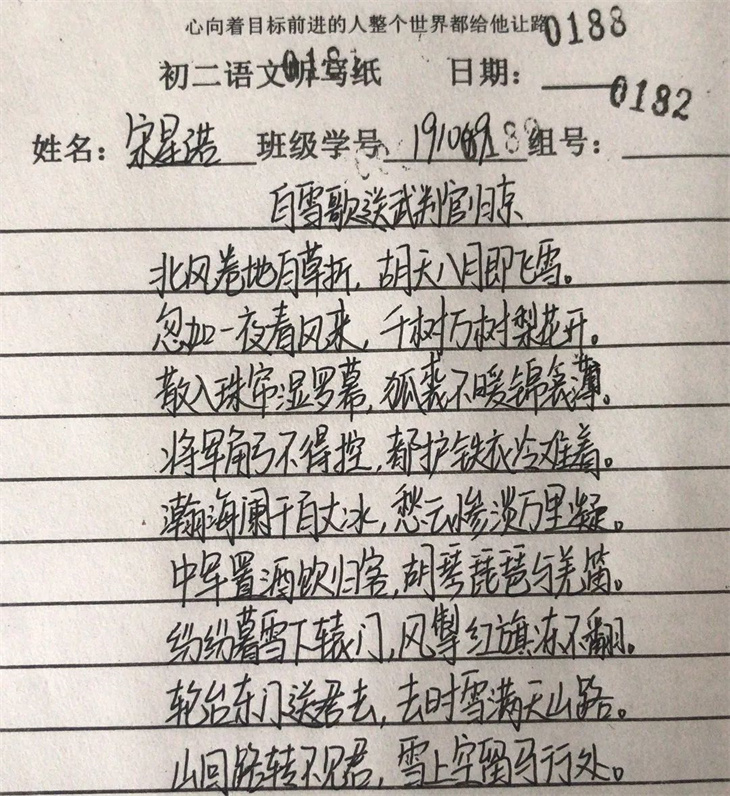 心向着目标前进的人整个世界都给他让路
0188
初二语文听写纸 日期：
0182
姓名：宋星诺 班级学号 组号：
白雪歌送武判官归京
北风卷地白草折，胡天八月即飞雪。
忽如一夜春风来，千树万树梨花开。
散入珠帘湿罗幕，狐裘不暖锦衾薄。
将军角弓不得控，都护铁衣冷难着。
瀚海阑干百丈冰，愁云惨淡万里凝。
中军置酒饮归客，胡琴琵琶与羌笛。
纷纷暮雪下辕门，风掣红旗冻不翻。
轮台东门送君去，去时雪满天山路。
山回路转不见君，雪上空留马行处。